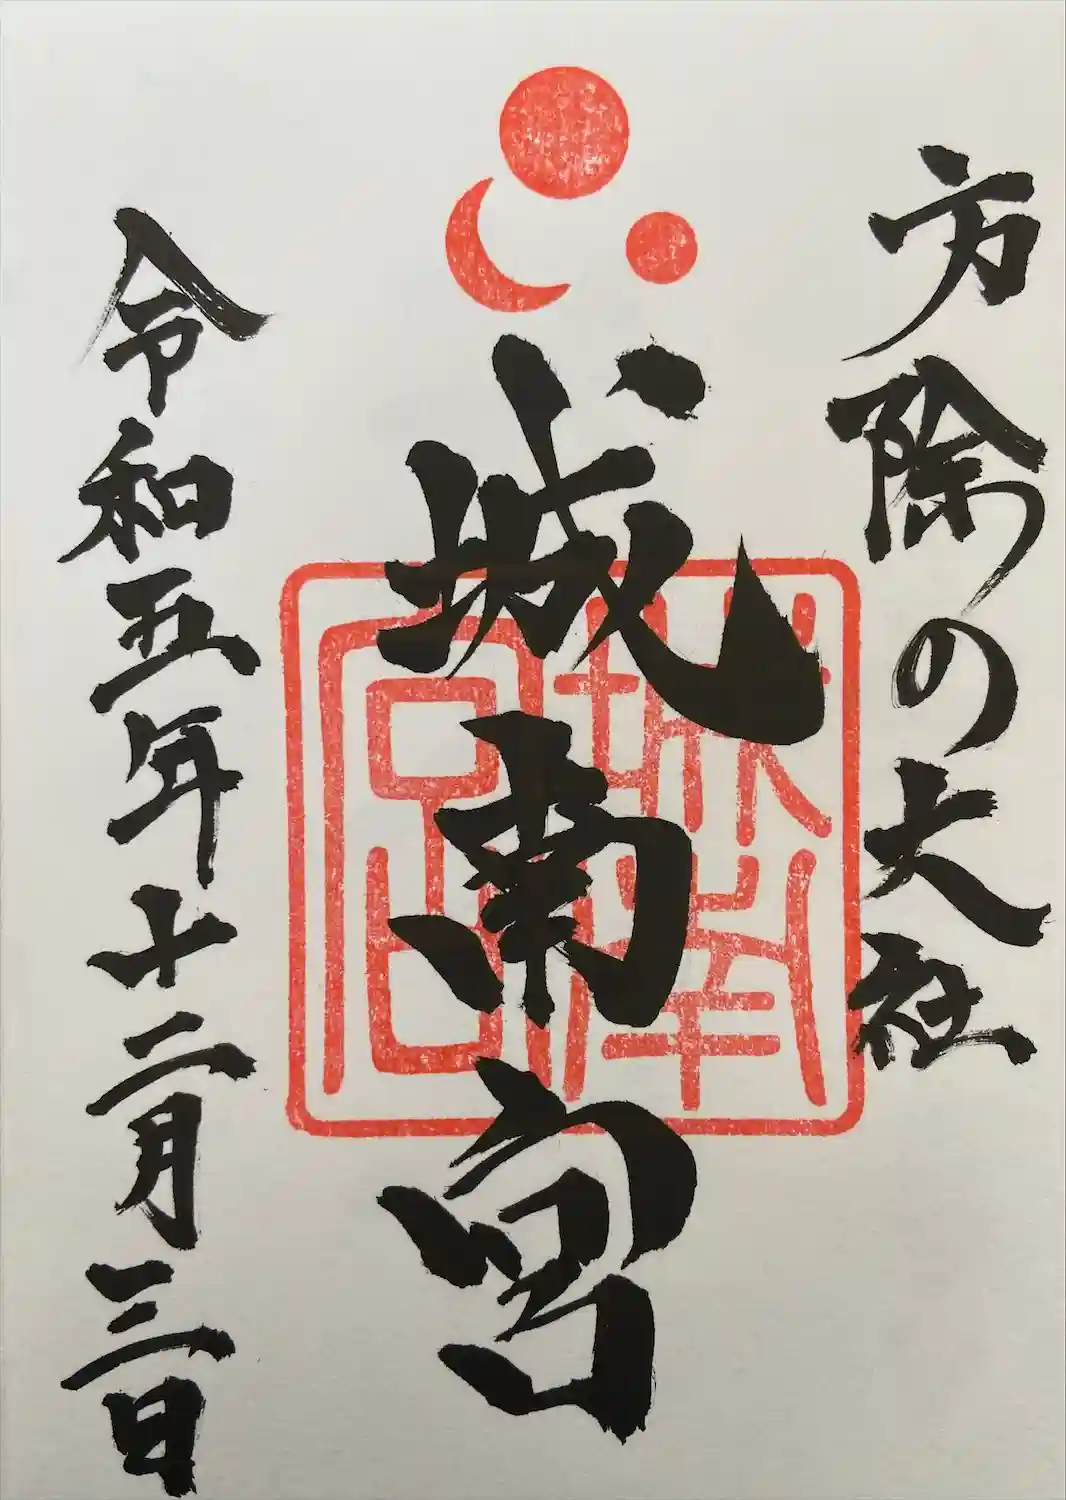 方除の大社
城南宮
城南宮
令和五年十二月三日